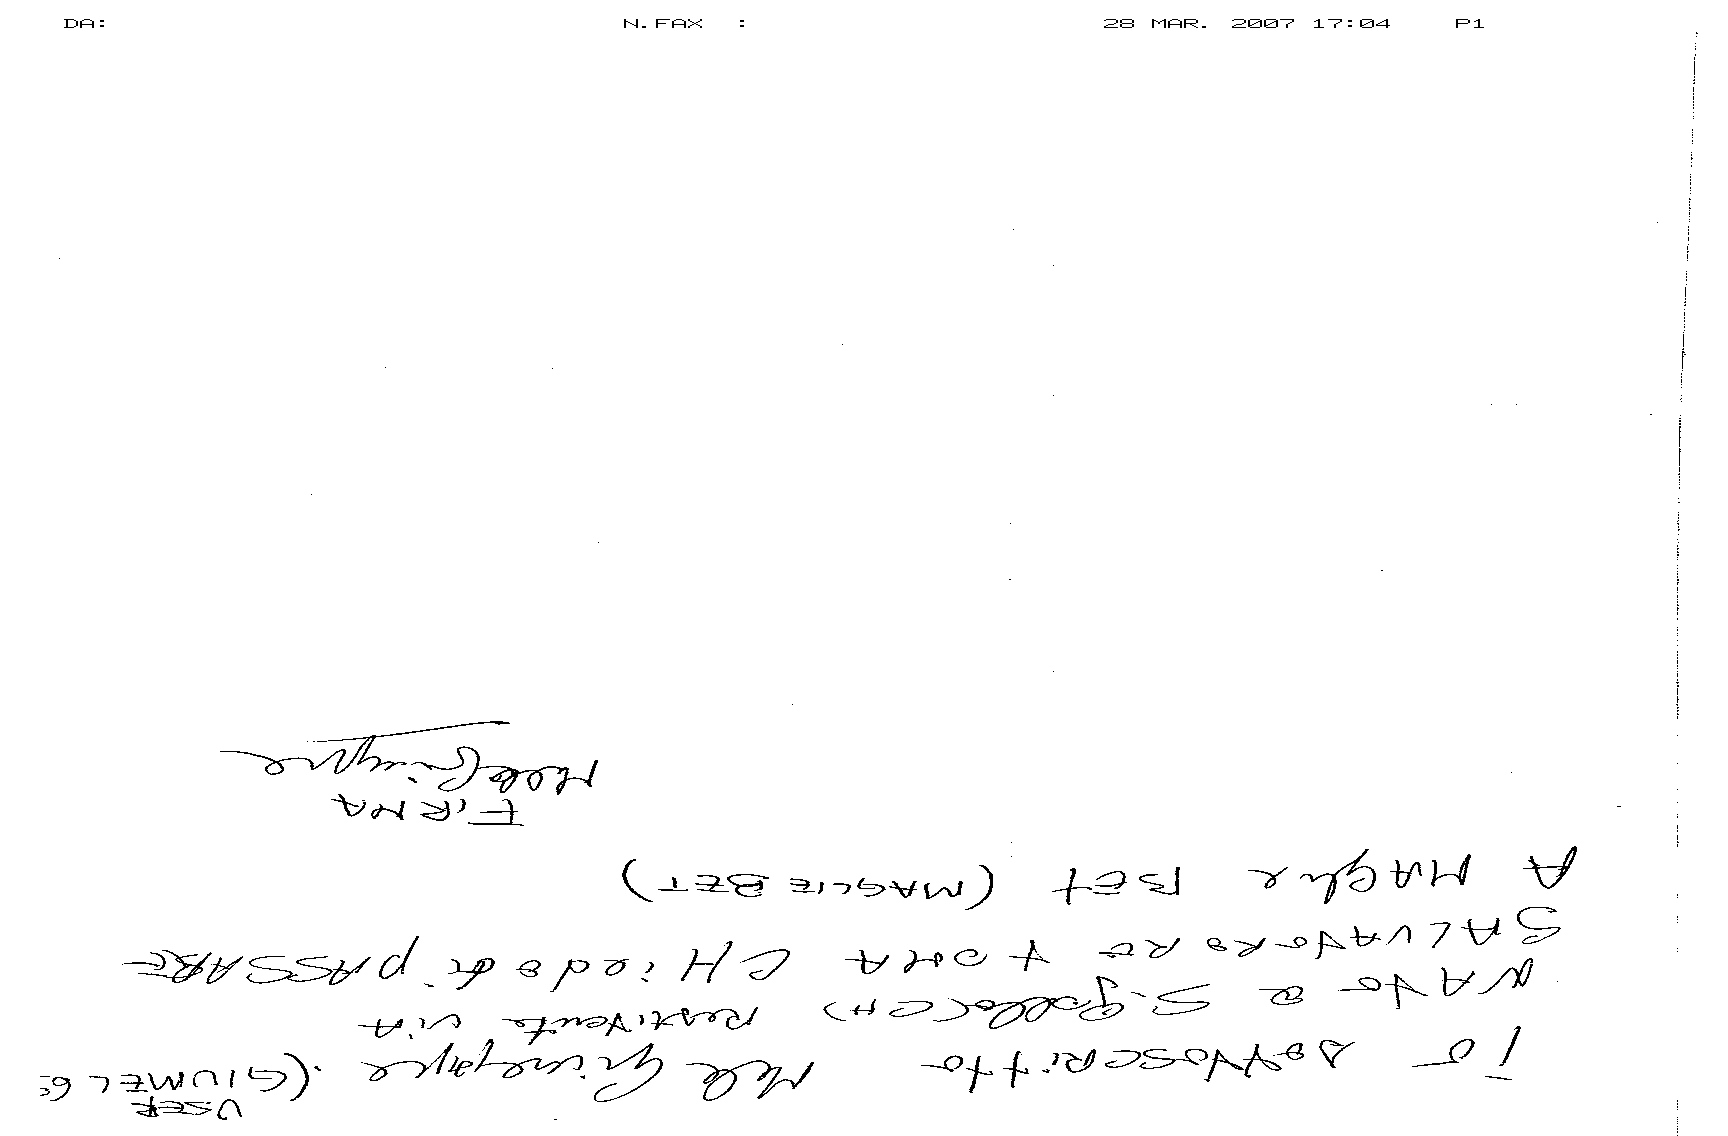 DA: N.FAX : 28 MAR. 2007 17:04 P1
USER
IO SOttOSCRitto Mele Giuseppe (GIUMEL6
NAto a S.Gallo (CH) Residente via
SALVATORE tOMA CHiedo di pASSARE
A MAGLIE BET (MAGLIEBET)
FIRMA
Mele Giuseppe